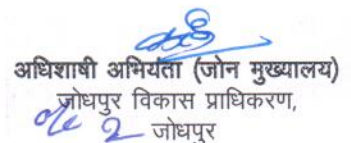 अधिशाषी अभियंता (जोन मुख्यालय)
जोधपुर विकास प्राधिकरण,
2 जोधपुर